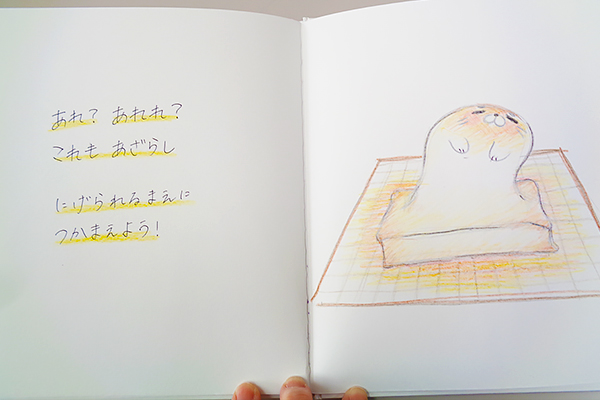 あれ? あれれ?
これも あざらし
にげられるまえに
つかまえよう!